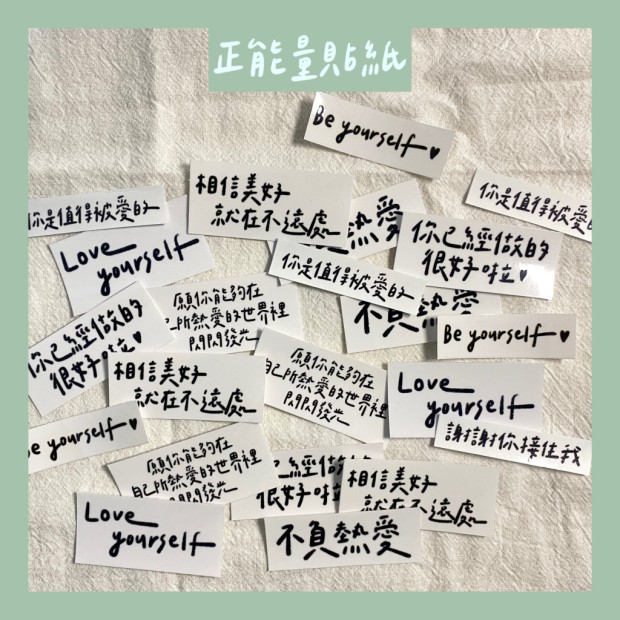 正能量貼紙
Be yourself ♥
你是值得被愛的
你是值得被愛的
相信美好
就在不遠處
熱愛
你已經做的
很好啦♥
Love
yourself
你是值得被愛的
不負熱愛
願你能夠在
己所熱愛的世界裡
閃閃發光
Be yourself ♥
你已經做的
很好啦♥
願你能夠在
自己所熱愛的世界裡
閃閃發光
相信美好
就在不遠處
Love
yourself
謝謝你接住我
Be yourself ♥
願你能夠在
自己所熱愛的世界裡
閃閃發光
已經做的
很好啦
相信美好
就在不遠處
Love
yourself
不負熱愛